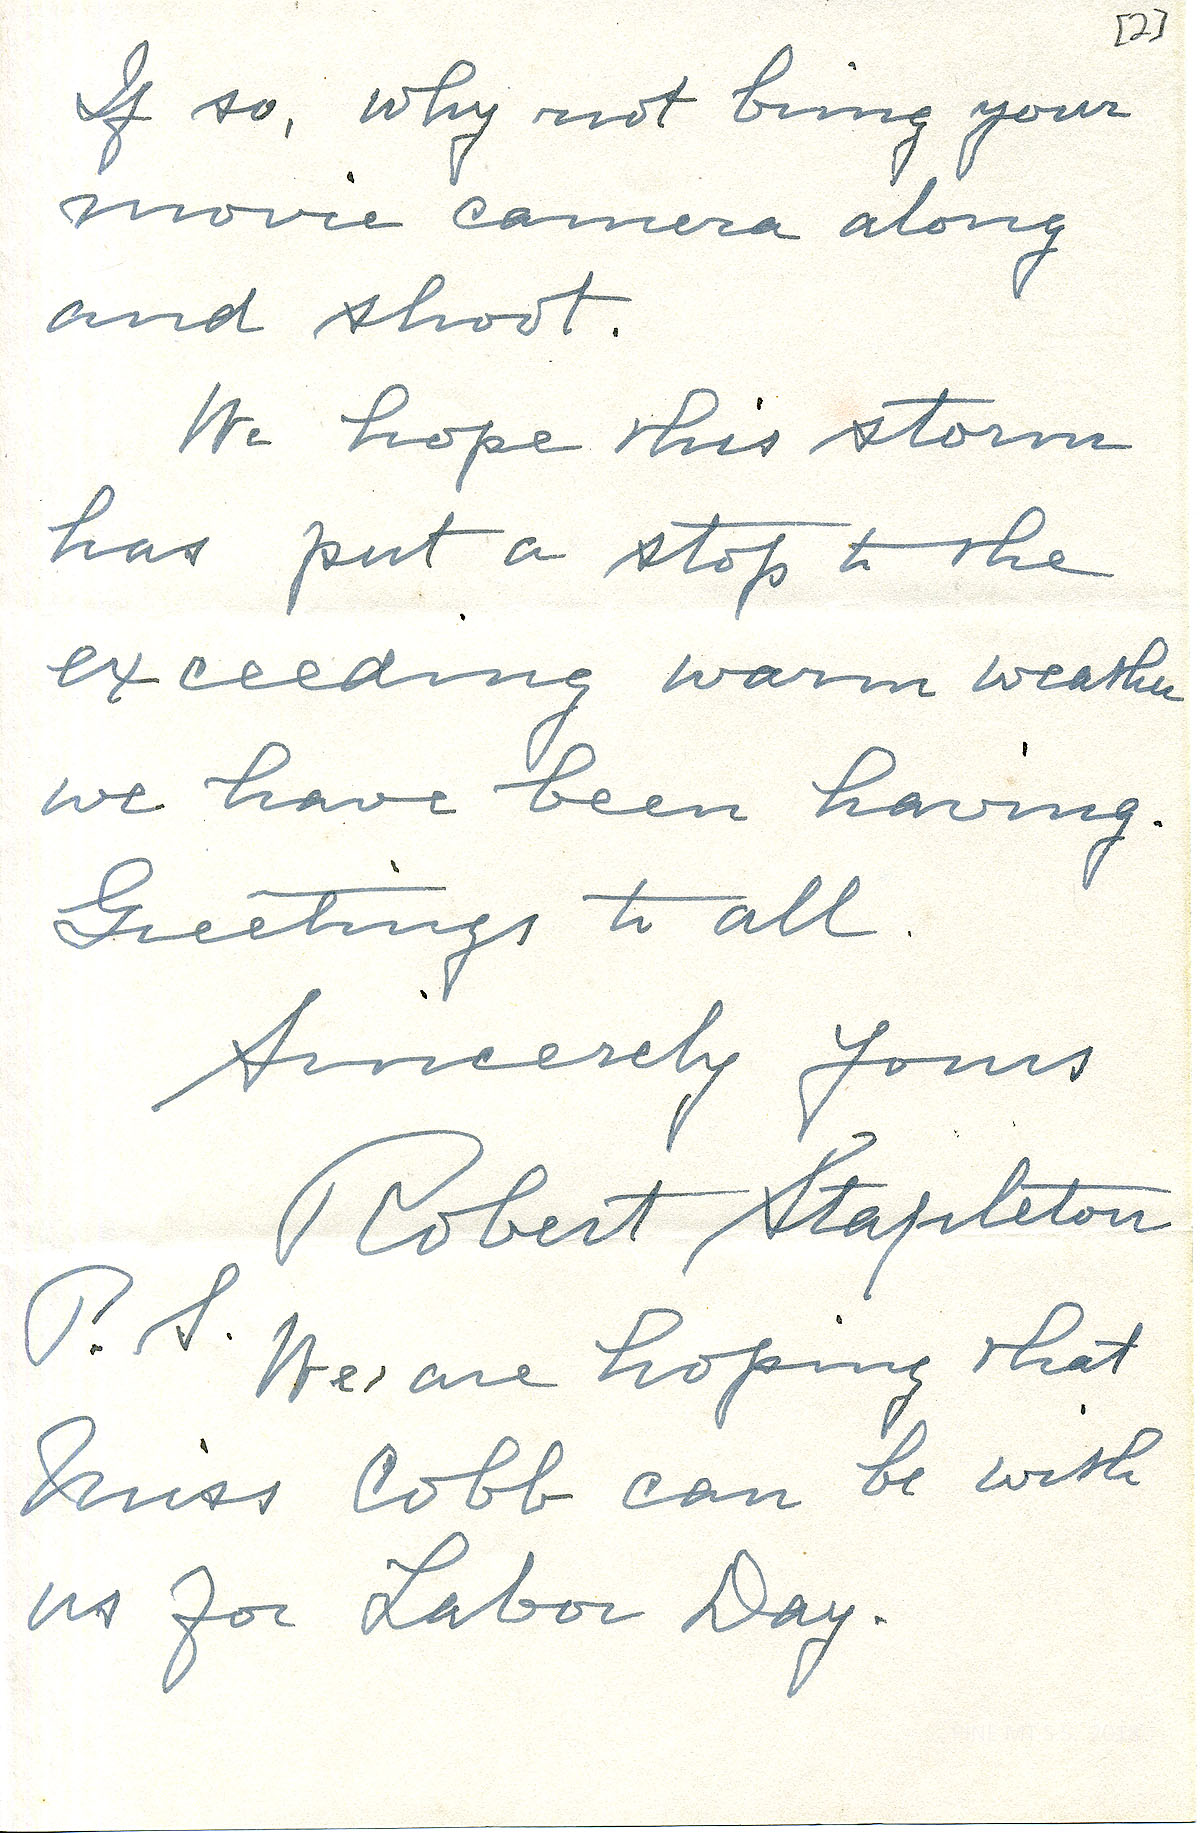 [2]
If so, why not bring your
movie camera along
and shoot.
We hope this storm
has put a stop to the
exceeding warm weather
we have been having.
Greetings to all.
Sincerely yours
Robert Stapleton
P. S. We, are hoping that
Miss Cobb can be with
us for Labor Day.